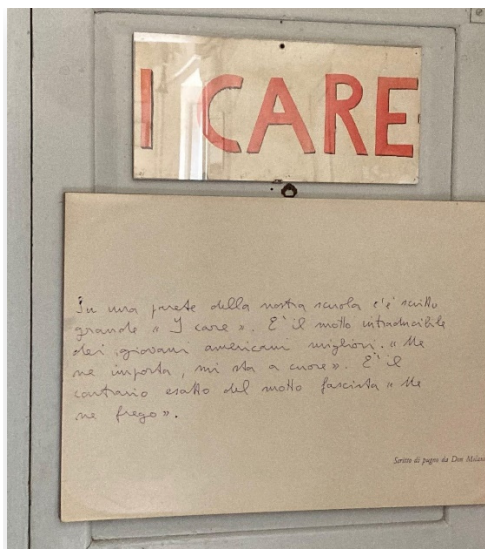 I CARE
In una parete della nostra scuola c'è scritto
grande « I care ». È il motto intraducibile
dei giovani americani migliori. « Me
ne importa, mi sta a cuore ». È il
contrario esatto del motto fascista « Me
ne frego ».
Scritto di pugno da Don Milani